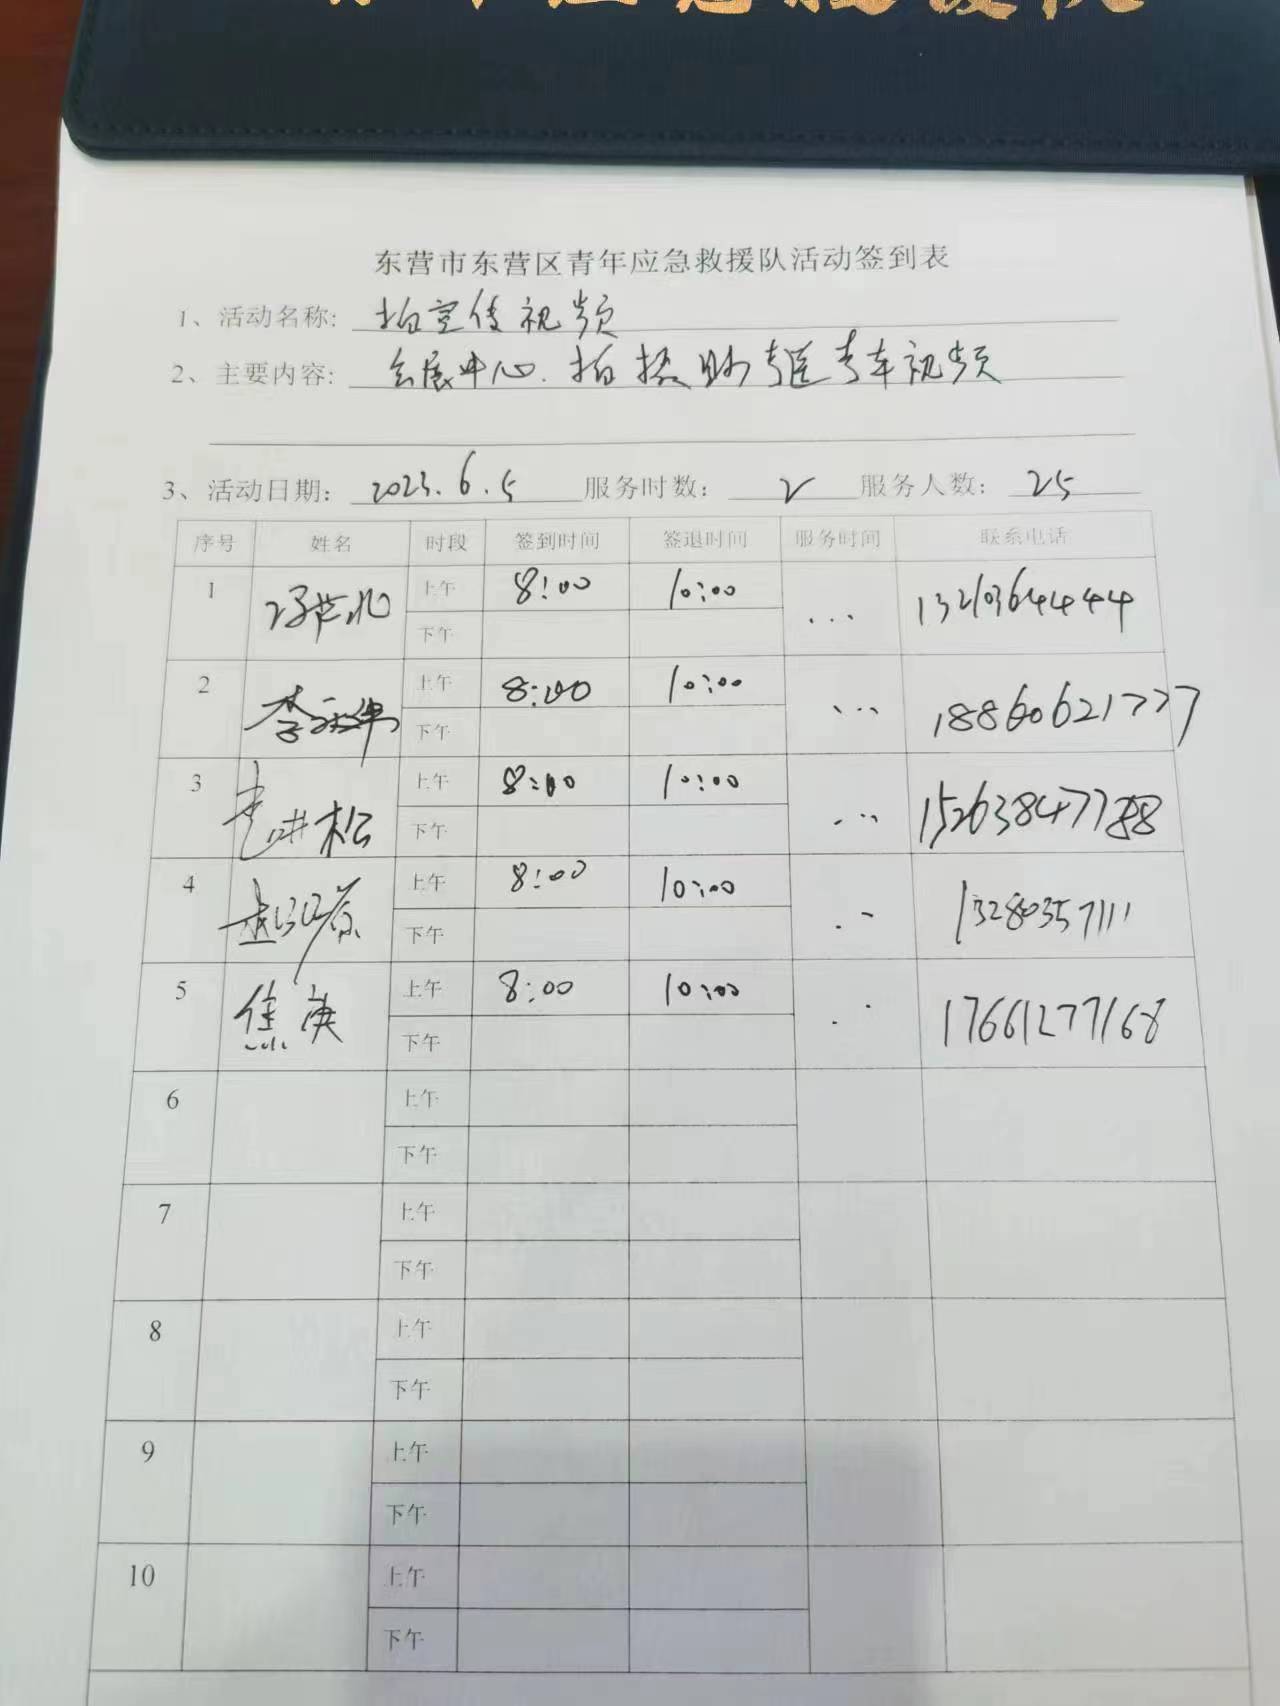 应急救援队
东营市东营区青年应急救援队活动签到表
1、活动名称: 拍宣传视频
2、主要内容: 会展中心.拍摄 车视频
3、活动日期: 2023.6.5 服务时数: 2 服务人数: 25
序号 姓名 时段 签到时间 签退时间 服务时间 联系电话
1 上午 8:00 10:00 ... 13210364444
下午
2 李 上午 8:00 10:00 ... 18860621777
下午
3 松 上午 8:00 10:00 ... 15263847788
下午
4 赵 上午 8:00 10:00 13280357111
下午
5 焦 上午 8:00 10:00 17661277168
下午
6 上午
下午
7 上午
下午
8 上午
下午
9 上午
下午
10 上午
下午